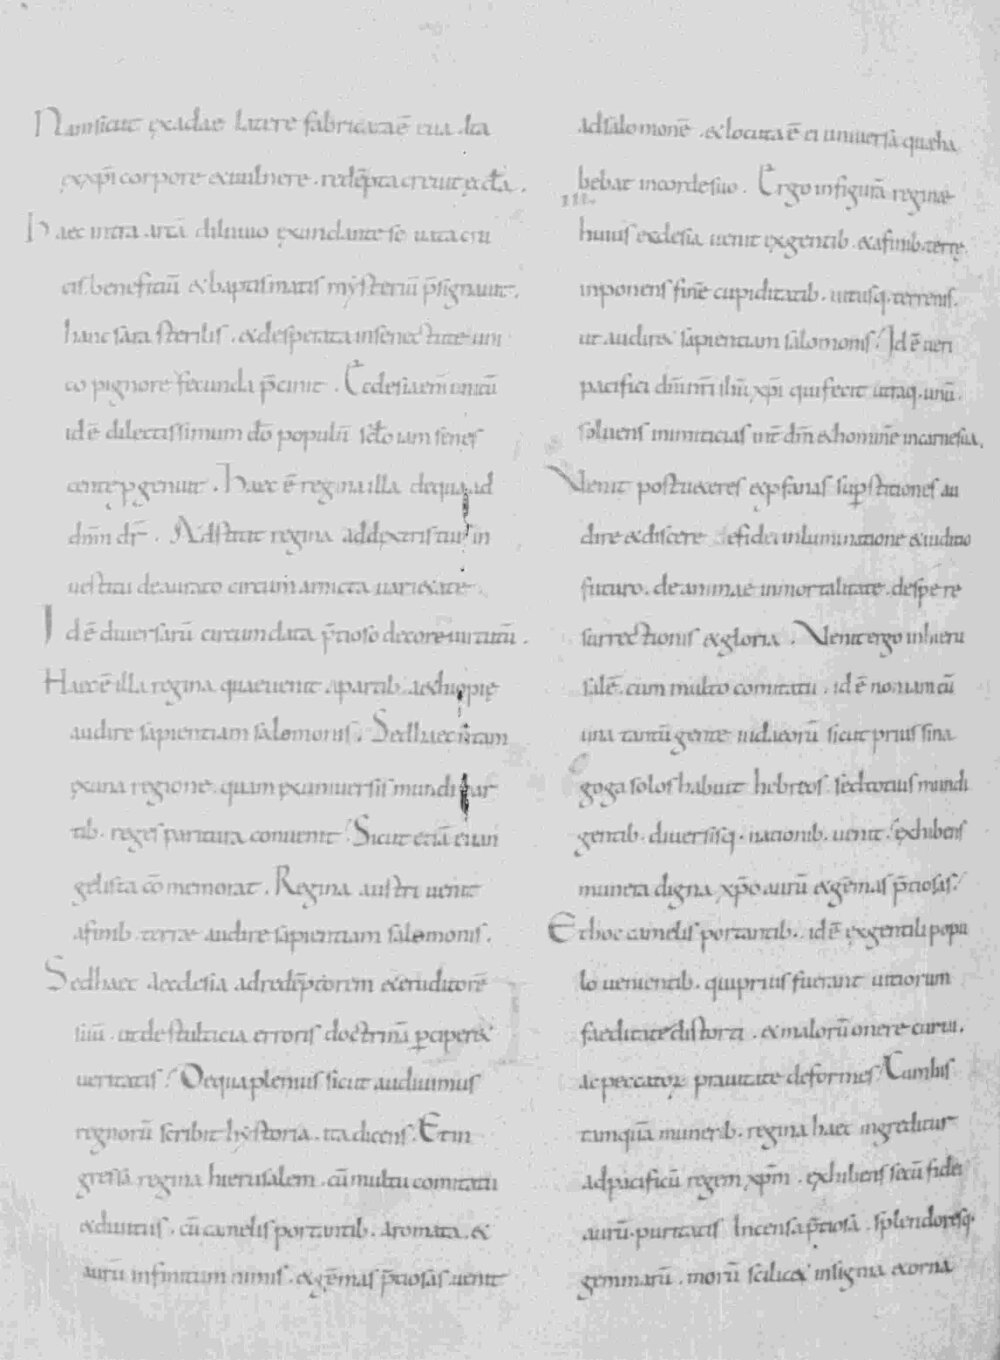 Nam sicut ex adae latere fabricata ē eua. Ita
ex xp̄i corpore ex uulnere. redēpta creuit eccła.
Haec intra arcā diluuio exundante se uata cru
cis beneficiū & baptismatis mysteriū p̄signauit.
hanc sara sterilis. & desperata in senectute uni
co pignore fecunda p̄cinit. Ecclesia em̄ unicū
id ē dilectissimum dō populū sc̄dō iam senes
cente p genuit. Haec ē regina illa de qua ad
dn̄m dr̄. Adstitit regina a dextris tuis in
uestitu deaurato circumamicta uarietate.
Id ē diuersarū circumdata p̄tioso decore uirtutū.
Haec ē illa regina quae uenit a partib. aethiopię
audire sapientiam salomonis. Sed haec n̄ tam
ex una regione. quam ex uniuersis mundi par
tib. reges paritura conuenit. Sicut etiā euan
gelista cōmemorat. Regina austri uenit
a finib. terrae audire sapientiam salomonis.
Sed haec aecclesia ad redēptorem & eruditorē
suū. ut de stultitia erroris doctrinā perciper&
ueritatis. De qua plenius sicut audiuimus
regnorū scribit hystoria. ita dicens. Et in
gressa regina hierusalem. cū multu comitatu
& diuitiis. cū camelis portantib. aromata. &
aurū infinitum nimis. & gēmas p̄tiosas uenit
ad salomonē. & locuta ē ei uniuersa quae ha
bebat in corde suo. Ergo in figurā reginae
huius ecclesia uenit ex gentib. & a finib. terrę.
inponens finē cupiditatib. uitiisq. terrenis.
ut audir& sapientiam salomonis. Id ē ueri
pacifici dn̄i nr̄i ih̄u xp̄i qui fecit utraq. unū.
soluens inimicicias int̄ dm̄ & hominē in carne sua.
Venit post ueteres & p̱fanas sup̱stitiones au
dire & discere de fidei inluminatione & iudicio
futuro. de animae inmortalitate. de spe re
surrectionis & gloria. Venit ergo in hieru
salē. cum multo comitatu. id ē non iam cū
una tantū gente iudaeorū sicut prius sina
goga solos habuit hebreos. sed totius mundi
gentib. diuersisq. nationib. uenit. exhibens
munera digna xp̄o aurū & gēmas p̄tiosas.
Et hoc camelis portantib. id ē ex gentili popu
lo uenientib. qui prius fuerant uitiorum
faeditate distorti. & malorū onere curui.
ac peccatoꝝ prauitate deformes. Cum his
tamquā munerib. regina haec ingreditur
ad pacificū regem xp̄m. exhibens secū fidei
aurū. puritatis Incensa p̄tiosa. splendoresq.
gemmarū. morū scilic& insignia exorna